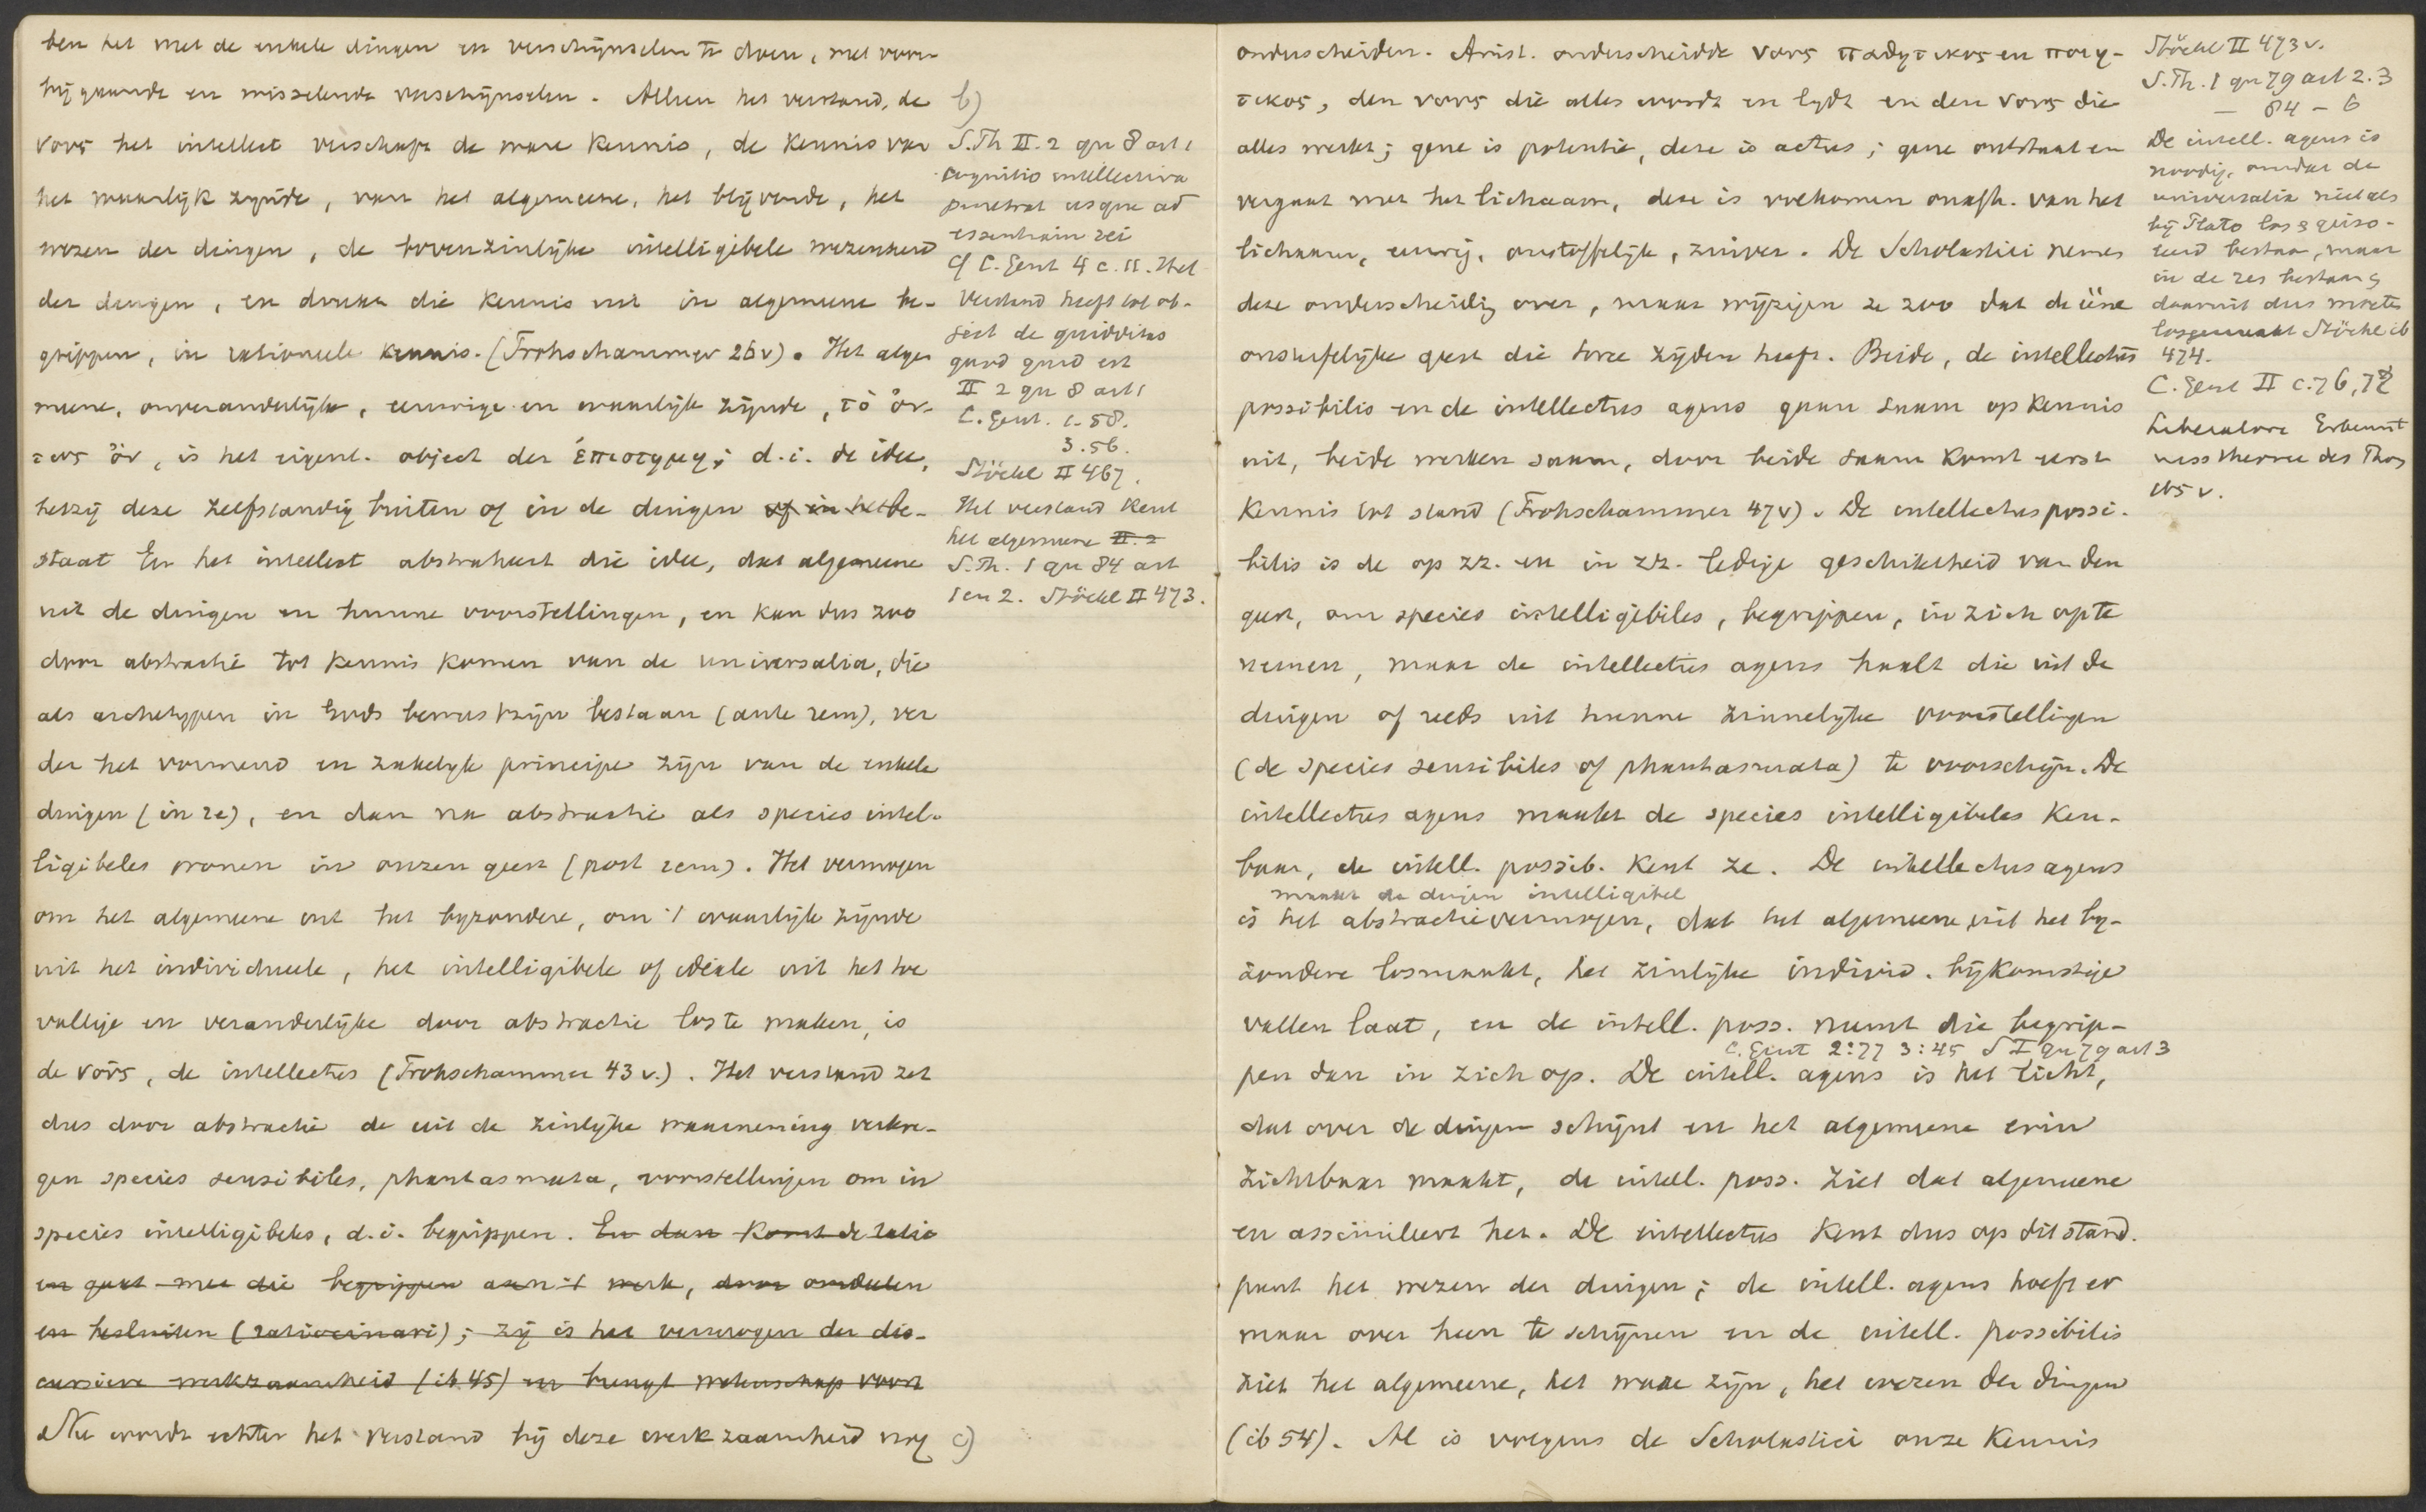 ben het met de enkele dingen en verschijnselen te doen, met voor-
bijgaande en wisselende verschijnselen. Alleen het verstand, de
νους het intellect verschaft de ware kennis, de kennis van
het waarlijk zijnde, van het algemeene, het blijvende, het
wezen der dingen, de bovenzinlijke intelligibele wezenheid
der dingen, en drukt die kennis uit in algemeene be-
grippen, in rationeele kennis. (Frohschammer 26v). Het alge
meene, onveranderlijke, eeuwige en waarlijk zijnde, τὸ ὄν-
τως ὄν, is het eigenl. object der ἐπιστημη; d.i. de idee,
hetzij deze zelfstandig buiten of in de dingen of in het be-
staat En het intellect abstraheert die idee, dat algemeene
uit de dingen en hunne voorstellingen, en kan dus zoo
door abstractie tot kennis komen van de universalia, die
als archetypen in Gods bewustzijn bestaan (ante rem), ver
der het vormend en zakelyk principe zijn van de enkele
dingen (in re), en dan na abstractie als species intel-
ligibeles wonen in onzen geest (post rem). Het vermogen
om het algemeene uit het byzondere, om 't waarlijk zijnde
uit het individueele, het intelligibele of ideale uit het toe
vallige en veranderlijke door abstractie los te maken, is
de νοῦς, de intellectus (Frohschammer 43 v.). Het verstand zet
dus door abstractie de uit de zinlijke waarneming verkre-
gen species sensibiles, phantasmata, voorstellingen om in
species intelligibeles, d.i. begrippen. En dan komt de ratio
en gaat met die begrippen aan 't werk, door oordeelen
en besluiten (ratiocinari); zij is het vermogen der dis-
cursieve werkzaamheid (ib 45) en brengt wetenschap voort
Nu wordt echter het verstand bij deze werkzaamheid nog
b)
S.Th II. 2 qu 8 art 1
cognitio intellectiva
penetrat usque ad
essentiam rei
cf C. Gent 4 c. 11. Het
verstand heeft tot ob-
ject de quidditas
quod quid est
II 2 qu 8 art 1
C. Gent. 1-58.
3.56.
Stöckl II 467.
Het verstand kent
het algemeene II. 2
S.Th. 1 qu 84 art
1 en 2. Stöckl II 473.
c)
onderscheiden. Arist. onderscheidde νους παθητικος en ποιη-
τικος, den νους die alles wordt en lydt en den νους die
alles werkt; gene is potentie, deze is actus; gene ontstaat en
vergaat met het lichaam, deze is volkomen onafh. van het
lichaam, eeuwig, onstoffelijk, zuiver. De Scholastici nemen
deze onderscheidig over, maar wijzigen ze zoo dat de ééne
onstoffelijke geest die twee zijden heeft. Beide, de intellectus
possibilis en de intellectus agens gaan saam op kennis
uit, beide werken samen, door beide saam komt eerst
kennis tot stand (Frohschammer 47v). De intellectus possi-
bilis is de op zz. en in zz. ledige geschiktheid van den
geest, om species intelligibiles, begrippen, in zich op te
nemen, maar de intellectus agens haalt die uit de
dingen of reeds uit hunne zinnelijke voorstellingen
(de species sensibiles of phantasmata) te voorschijn. De
intellectus agens maakt de species intelligibeles ken-
baar, de intell. possib. kent ze. De intellectus agens
maakt de dingen intelligibel
is het abstractievermogen, dat het algemeene uit het by-
zondere losmaakt, het zinlijke individ. bijkomstige
vallen laat, en de intell. poss. neemt die begrip-
C. Gent 2:77 3:45 S I qu 79 art 3
pen dan in zich op. De intell. agens is het licht,
dat over de dingen schijnt en het algemeene erin
zichtbaar maakt, de intell. poss. ziet dat algemeene
en assimileert het. De intellectus kent dus op dit stand-
punt het wezen der dingen; de intell. agens hoeft er
maar over heen te schijnen en de intell. possibilis
ziet het algemeene, het ware zijn, het wezen der dingen
(ib 54). Al is volgens de Scholastici onze kennis
Stöckl II 473 v.
S.Th. 1 qu 79 art 2. 3
— 84 – 6
De intell. agens is
noodig, omdat de
universalia niet als
bij Plato los & geiso-
leerd bestaan, maar
in de res bestaan &
daaruit dus moeten
losgemaakt Stöckl ib
474.
C. Gent II c. 76, 77
Liberatore Erkennt
nisstheorie des Thom
165 v.